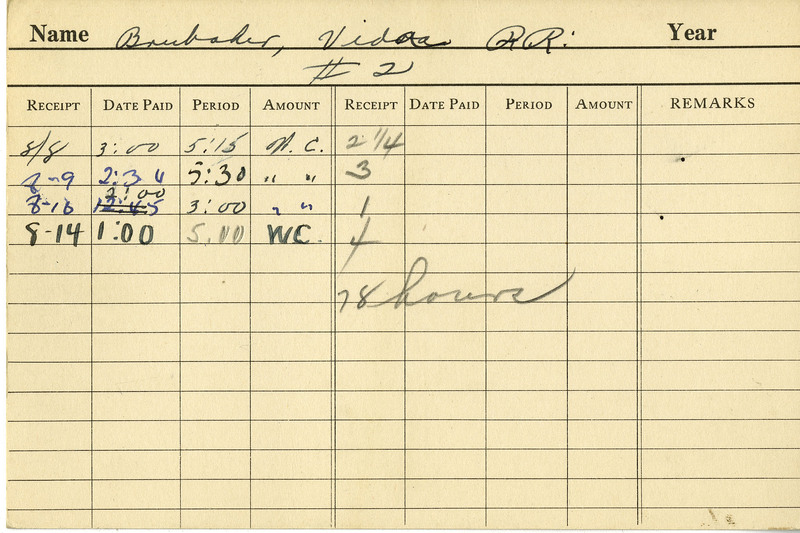 Name Brubaker, Vida RR: Year
# 2
RECEIPT DATE PAID PERIOD AMOUNT RECEIPT DATE PAID PERIOD AMOUNT REMARKS
8/8 3:00 5:15 N.C. 2 1/4
8-9 2:30 5:30 " " 3
2:00
8-10 12:45 3:00 " " 1
8-14 1:00 5:00 WC. 4
78 hours